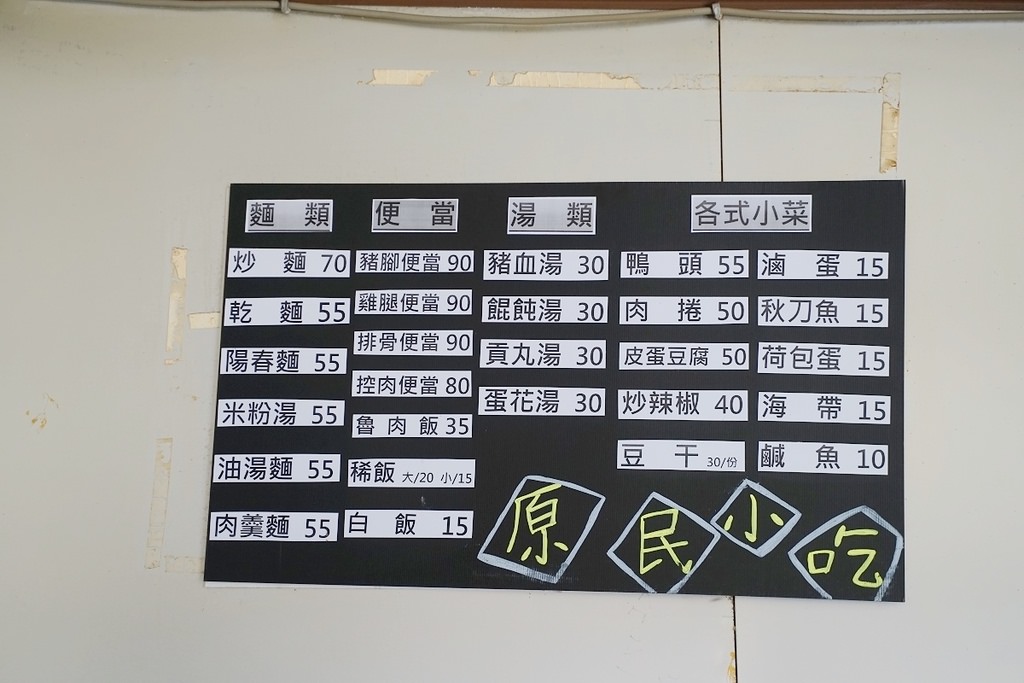 麵 類
炒 麵 70
乾 麵 55
陽春麵 55
米粉湯 55
油湯麵 55
肉羹麵 55
便 當
豬腳便當 90
雞腿便當 90
排骨便當 90
控肉便當 80
魯肉飯 35
稀飯 大/20 小/15
白 飯 15
湯 類
豬血湯 30
餛飩湯 30
貢丸湯 30
蛋花湯 30
各式小菜
鴨 頭 55
肉 捲 50
皮蛋豆腐 50
炒辣椒 40
豆 干 30/份
滷 蛋 15
秋刀魚 15
荷包蛋 15
海 帶 15
鹹 魚 10
原民小吃